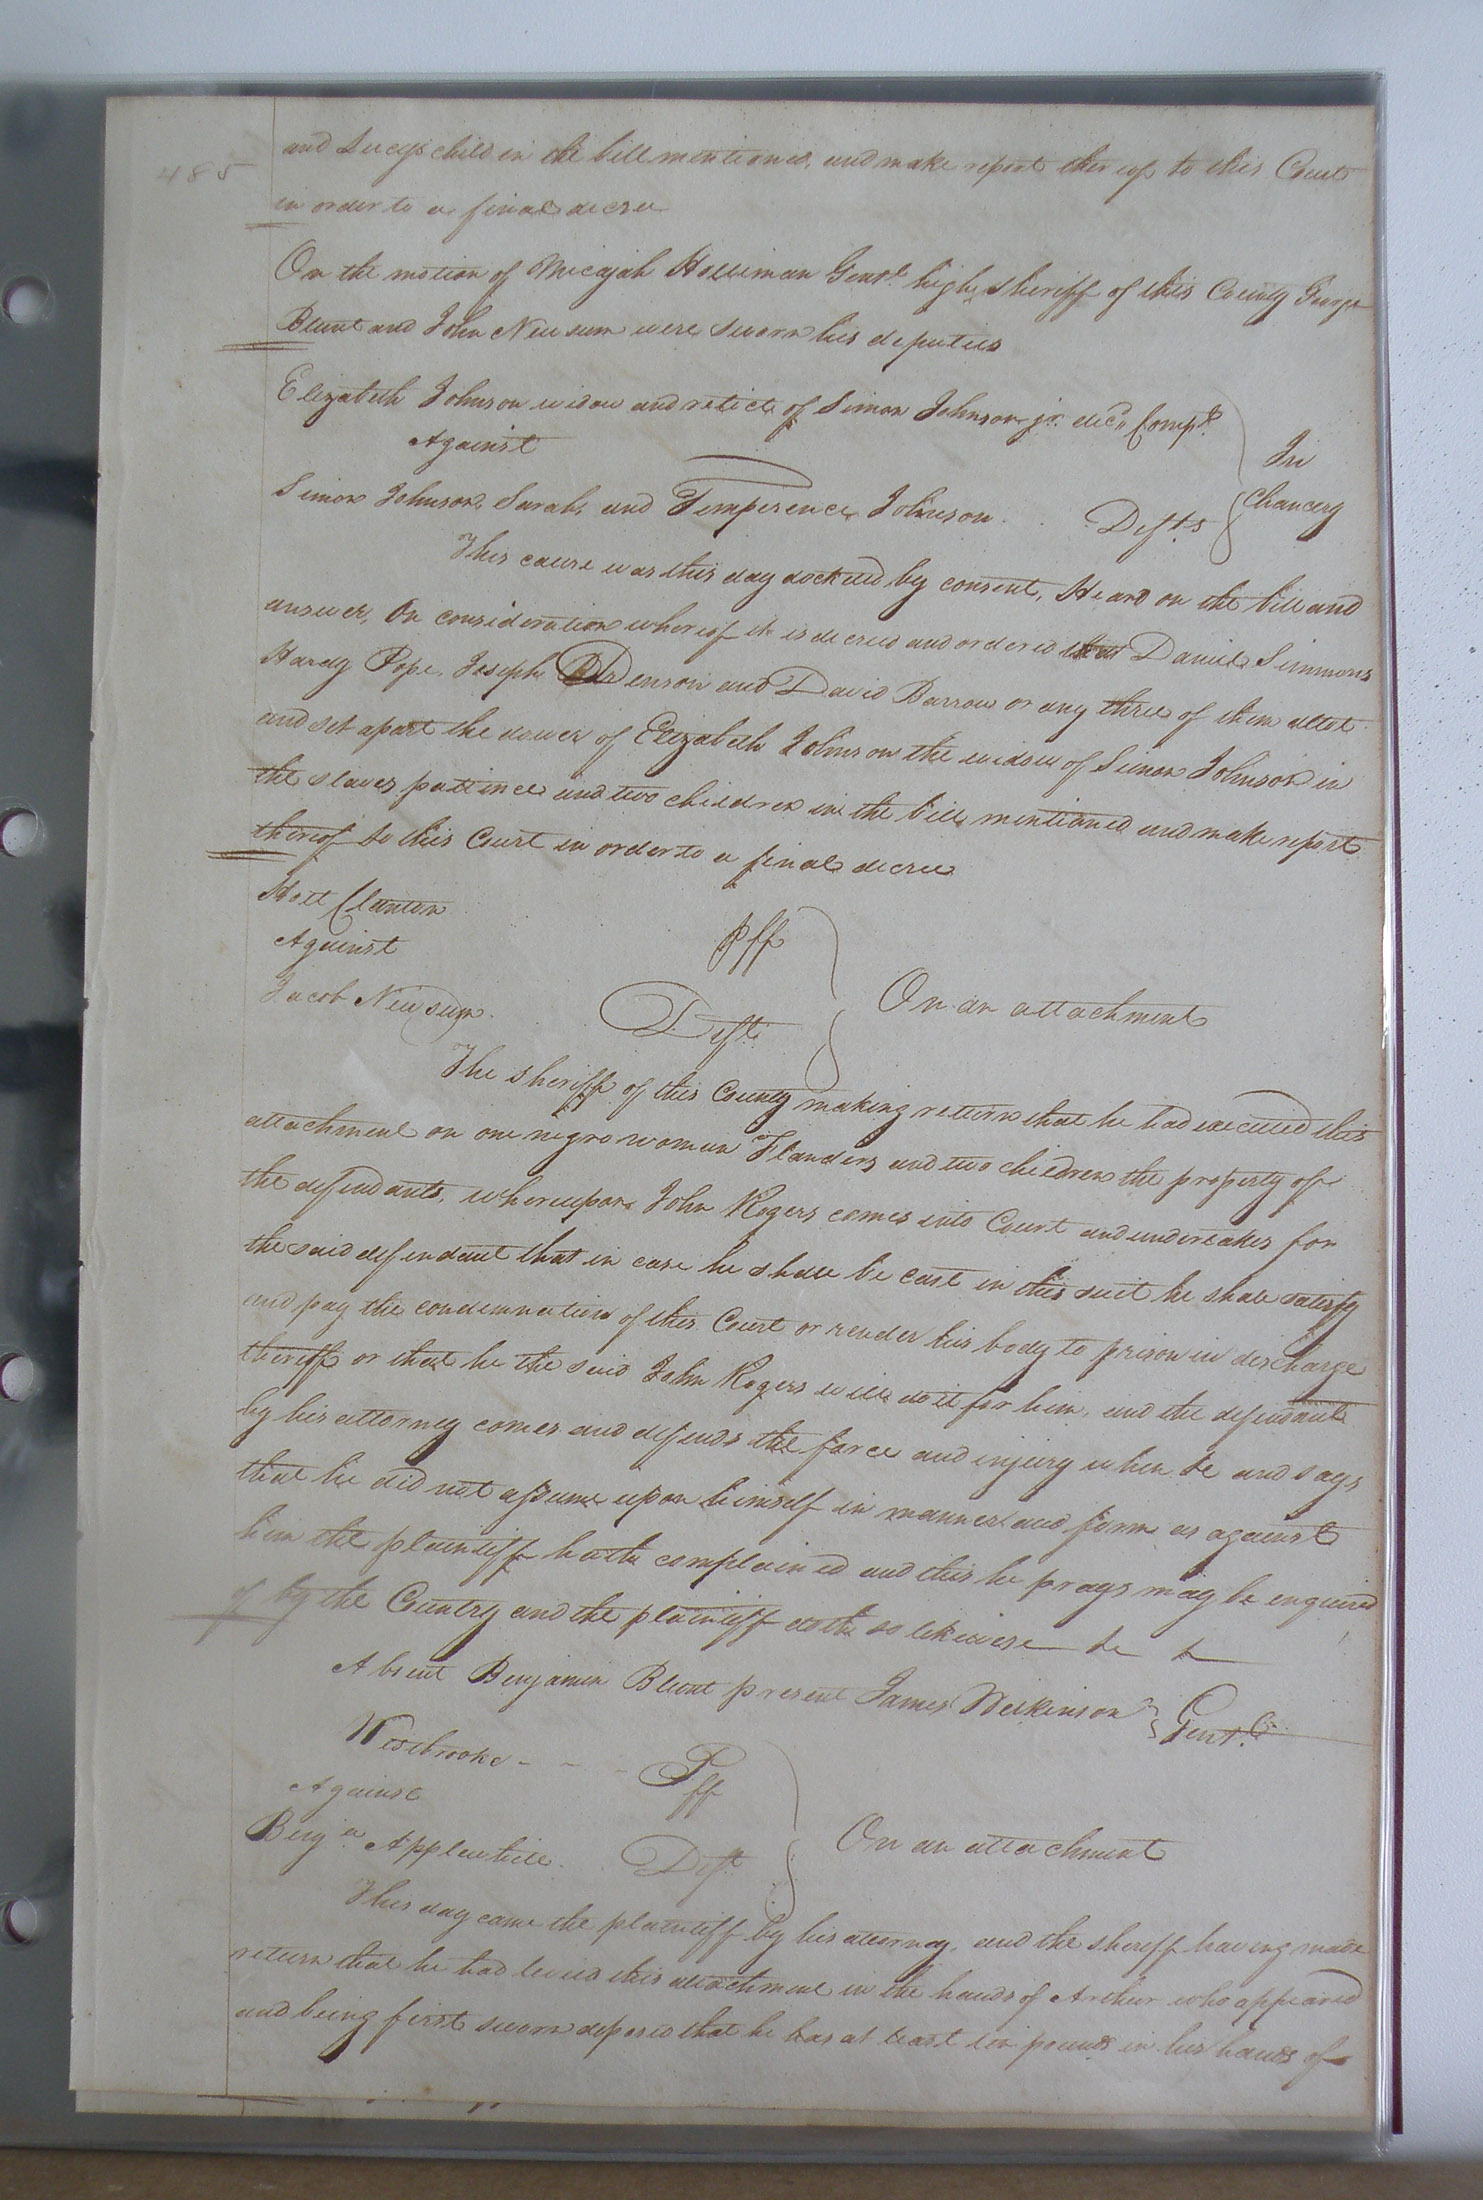 485
and Lucys child in the bill mentioned, and make report thereof to this Court
in order to a final decree
On the motion of Micajah Holliman Gentl. high sheriff of this County George
Blunt and John Newsum were sworn his deputies
Elizabeth Johnson widow and relict of Simon Johnson jr. decd. Complt.
Against
In
Chancery
Simon Johnson, Sarah, and Temperence Johnson Defts
This cause was this day docketed by consent, Heard on the bill and
answer, On consideration whereof it is decreed and ordered that Daniel Simmons
Hardy Pope, Joseph Denson and David Barrow or any three of them allot
and set apart the dower of Elizabeth Johnson the widow of Simon Johnson in
the slaves pattince and two children in the bill mentioned and make report
thereof to this Court in order to a final decree
Holt Clanton
Plff
Against
On an attachment
Jacob Newsum.
Deft.
The sheriff of this County making return that he had executed this
attachment on one negro woman Flanders and two children the property of
the defendants, whereupon John Rogers comes into Court and undertakes for
the said defendant that in case he shall be cast in this suit he shall satisfy
and pay the condemnation of this Court or render his body to prison in discharge
thereoff or that he the said John Rogers will do it for him, and the defendant
by his attorney comes and defends the force and injury when &c and says
that he did not assume upon himself in manner and form as against
him the plaintiff hath complained and this he prays may be enquired
of by the Country and the plaintiff doth so likewise &c &c
Absent Benjamin Blunt present James Wilkinson Gentl.
Westbrooke - - - Plff
Against
On an attachment
Benja Applewhite. Deft
This day came the plaintiff by his attorney, and the sheriff having made
return that he had levied this attachment in the hands of Arthur who appeared
and being first sworn deposed that he has at least ten pounds in his hands of